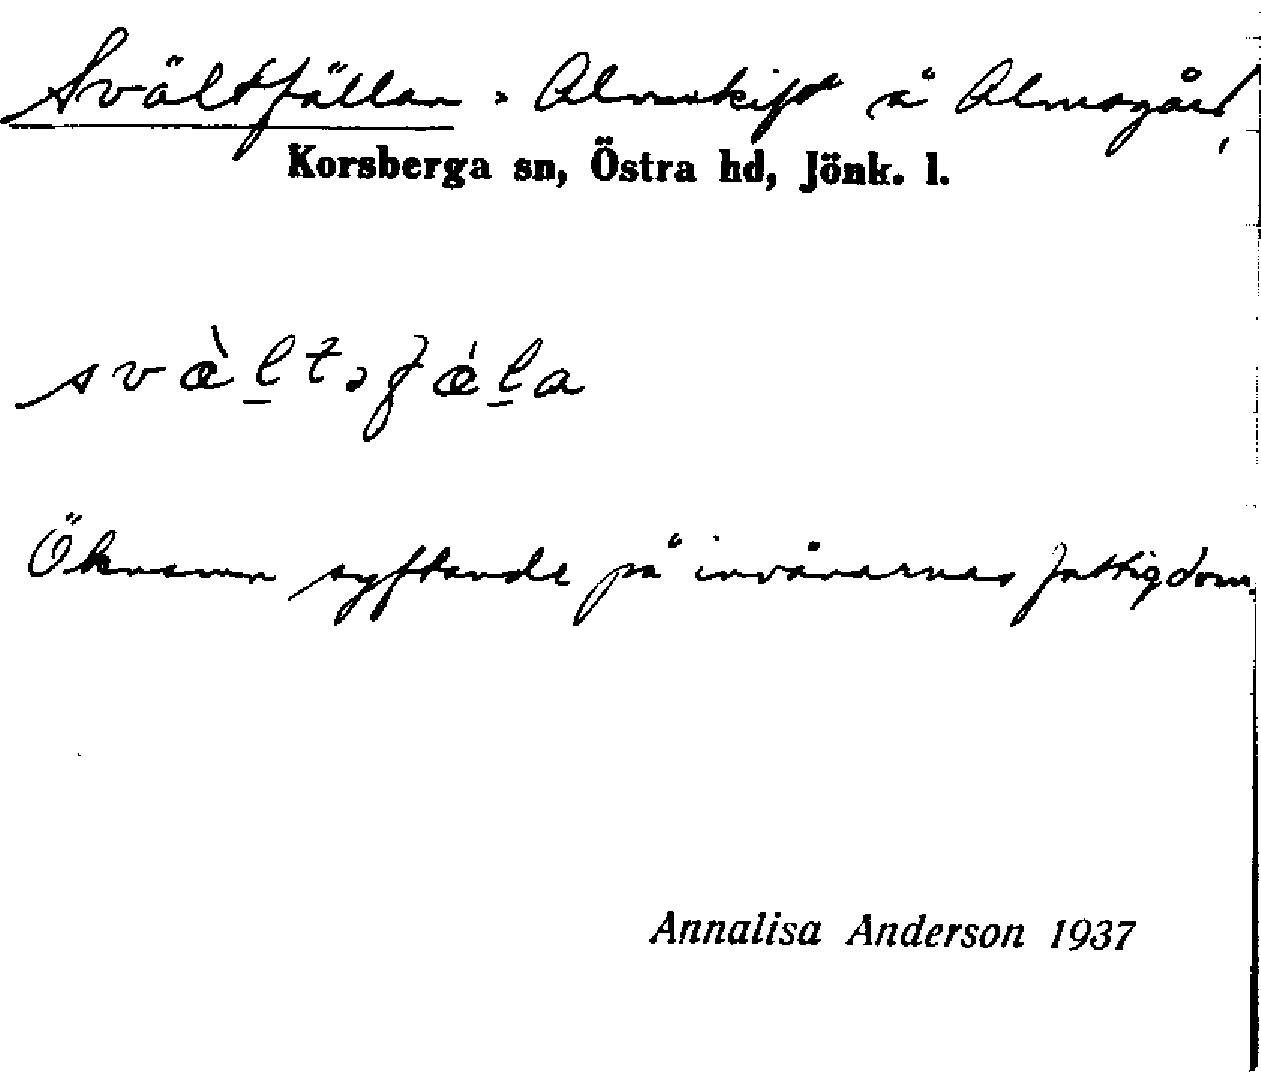 Svältfällan = Almeskift å Almsgård,
Korsberga sn, Östra hd, Jönk. l.
svæ̀l̲təfǽl̲a
Öknamn syftande på invånarnas fattigdom.
Annalisa Anderson 1937